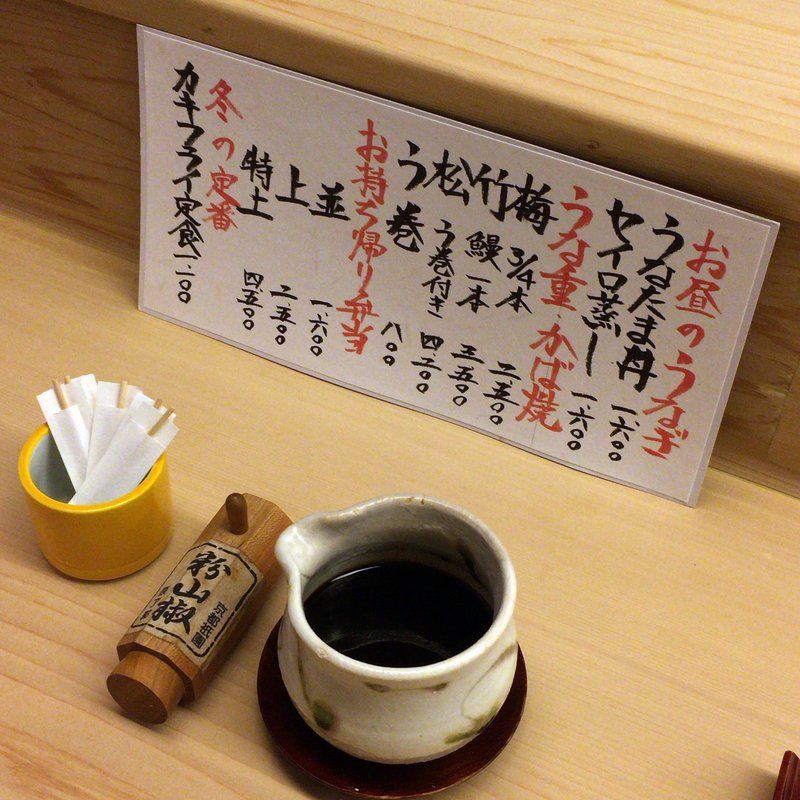 お昼のうなぎ
うなたま丼 一、六〇〇
セイロ蒸し 一、六〇〇
うな重・かば焼
梅 3/4本 二、五〇〇
竹 鰻一本 三、五〇〇
松 う巻付き 四、二〇〇
う巻 八〇〇
お持ち帰り弁当
並 一、六〇〇
上 二、五〇〇
特上 四、五〇〇
冬の定番
カキフライ定食 一、二〇〇
京都祇園
粉山椒